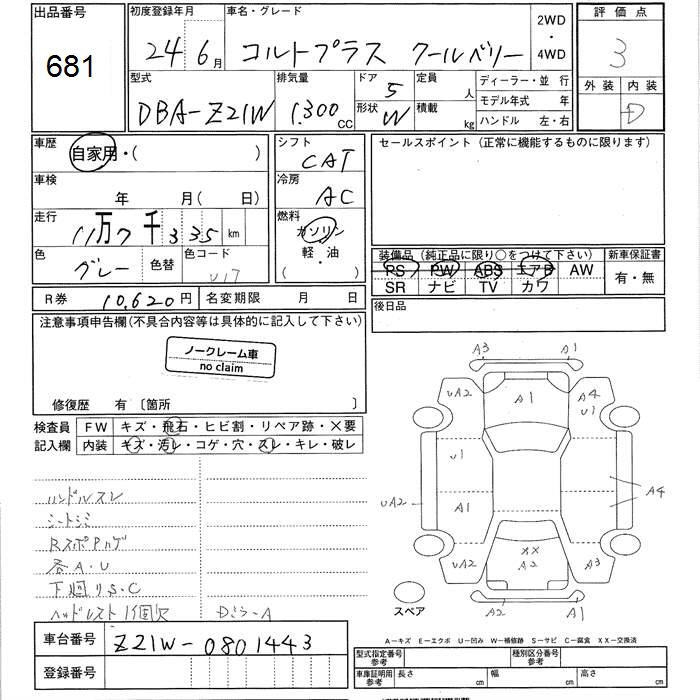 出品番号
681
初度登録年月
24 6月
車名・グレード
コルトプラス クールベリー
2WD
・
4WD
評価点
3
外装 内装
D
型式
DBA-Z21W
排気量
1.300 CC
ドア
5
形状
W
定員
人
積載
kg
ディーラー・並 行
モデル年式 年
ハンドル 左・右
車歴
自家用・( )
車検
年 月( 日)
走行
11万7千335km
色
グレー
色替
色コード
U17
シフト
CAT
冷房
AC
燃料
ガソリン
軽・油
( )
セールスポイント (正常に機能するものに限ります)
装備品 (純正品に限り○をつけて下さい)
PS PW ABS エアB AW
SR ナビ TV カワ
新車保証書
有・無
R券
10,620円
名変期限 月 日
後日品
注意事項申告欄(不具合内容等は具体的に記入して下さい)
ノークレーム車
no claim
修復歴 有 〔箇所 〕
検査員
記入欄
FW キズ・飛石・ヒビ割・リペア跡・×要
内装 キズ・汚レ・コゲ・穴・スレ・キレ・破レ
ハンドルスレ
シートシミ
RスポPハゲ
各A・U
下廻りS・C
ヘッドレスト1個欠
Dミラ-A
A3 A1
UA2 A1 A4
U1
U1
UA2 A1 A4
UA2 XX A3
A2
A2 A1
スペア
A-キズ E-エクボ U-凹み W-補修跡 S-サビ C-腐食 XX-交換済
車台番号
Z21W-0801443
登録番号
型式指定番号
参考
種別区分番号
参考
車庫証明用
参考
長さ cm 幅 cm 高さ cm